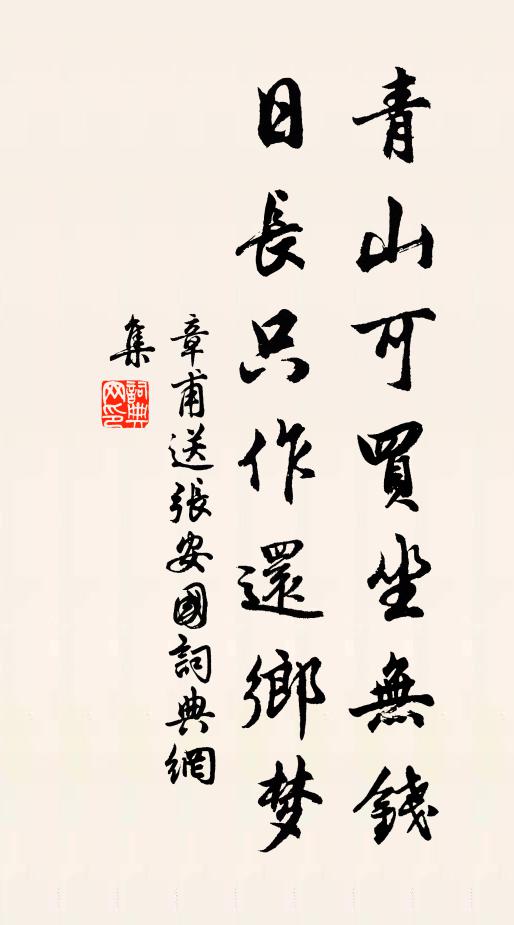 青山可買坐無錢
日長只作還鄉梦
章甫送張安國詞典網
集
詞典
网印